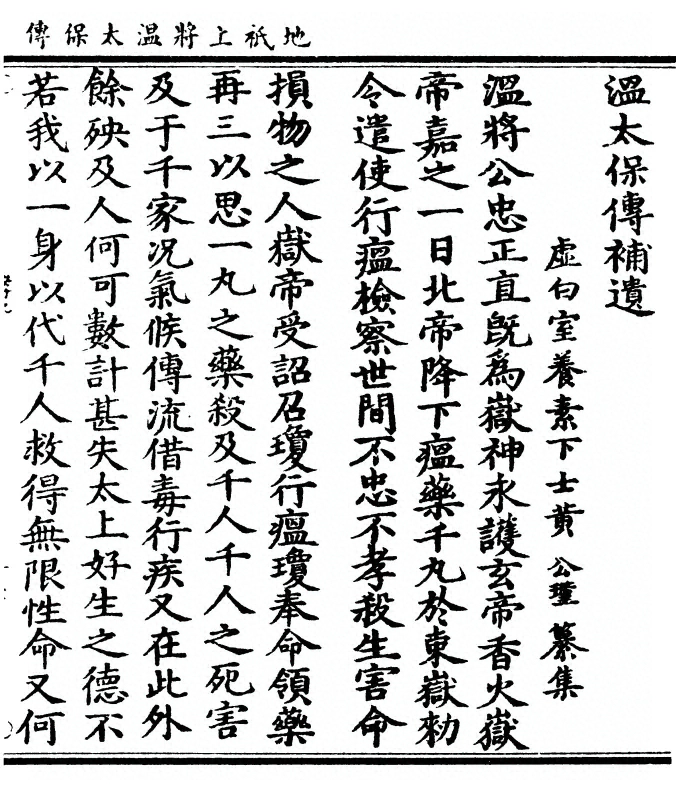 地祇上將溫太保傳
溫太保傳補遺
虛白室養素下士黄公瑾纂集
溫將公忠正直旣爲嶽神永護玄帝香火嶽
帝嘉之一日北帝降下瘟藥千丸於東嶽勑
令遣使行瘟檢察世間不忠不孝殺生害命
損物之人嶽帝受詔召瓊行瘟瓊奉命領藥
再三以思一丸之藥殺及千人千人之死害
及于千家况氣候傳流借毒行疾又在此外
餘殃及人何可數計甚失太上好生之德不
若我以一身以代千人救得無限性命又何